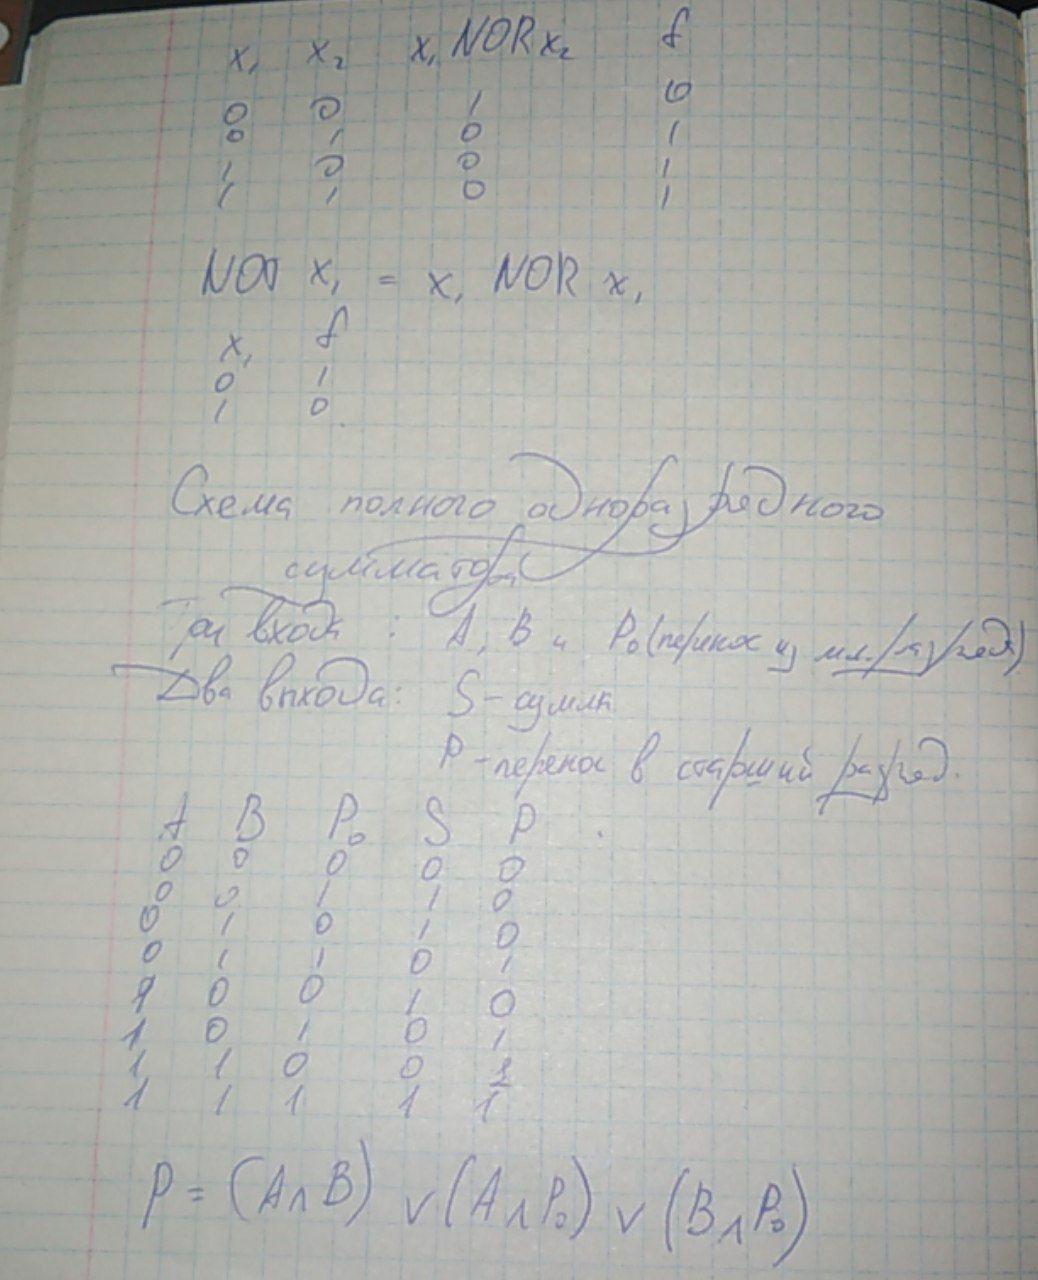 x₁ x₂ x₁ NOR x₂ f
0 0 1 0
0 1 0 1
1 0 0 1
1 1 0 1
NOT x₁ = x₁ NOR x₁
x₁ f
0 1
1 0
Схема полного одноразрядного
сумматора
Три входа : A, B и P₀ (перенос из мл. разряда)
Два выхода: S - сумма
P - перенос в старший разряд.
A B P₀ S P
0 0 0 0 0
0 0 1 1 0
0 1 0 1 0
0 1 1 0 1
1 0 0 1 0
1 0 1 0 1
1 1 0 0 1
1 1 1 1 1
P = (A∧B) ∨ (A∧P₀) ∨ (B∧P₀)